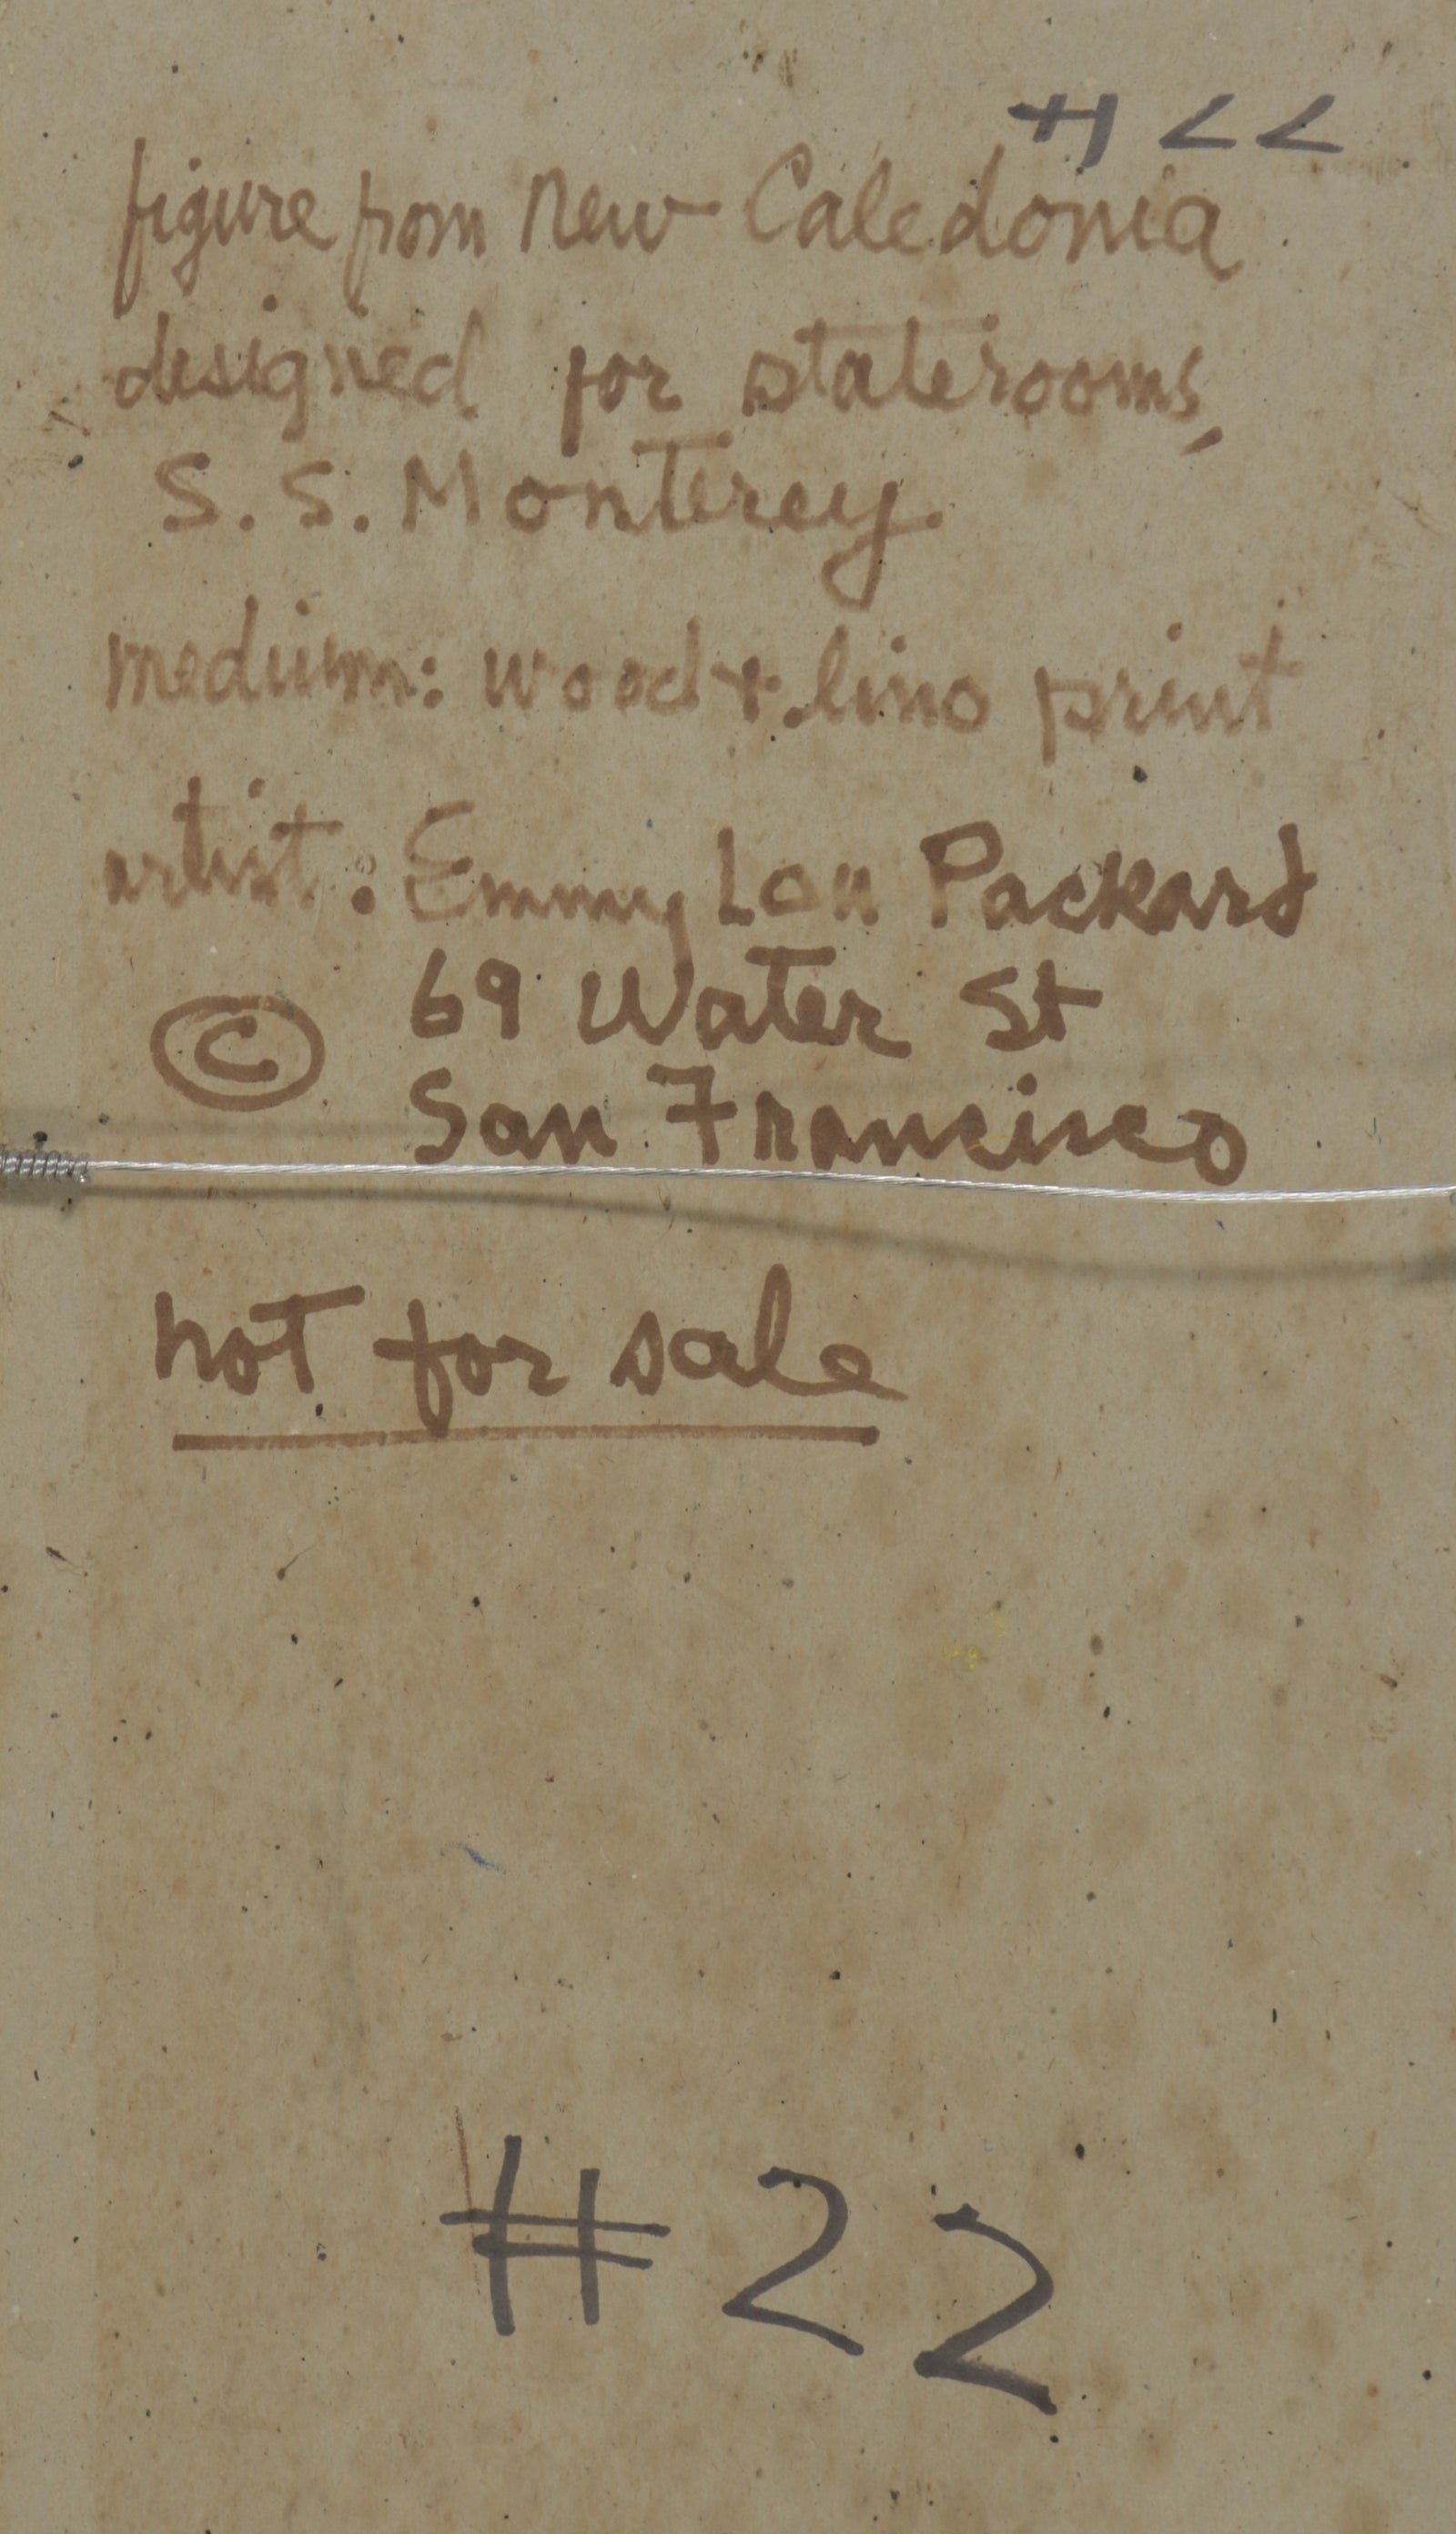 # 22
figure from New Caledonia
designed for staterooms,
S.S. Monterey
medium: wood + lino print
artist: Emmy Lou Packard
69 Water St
© San Francisco
not for sale
# 22